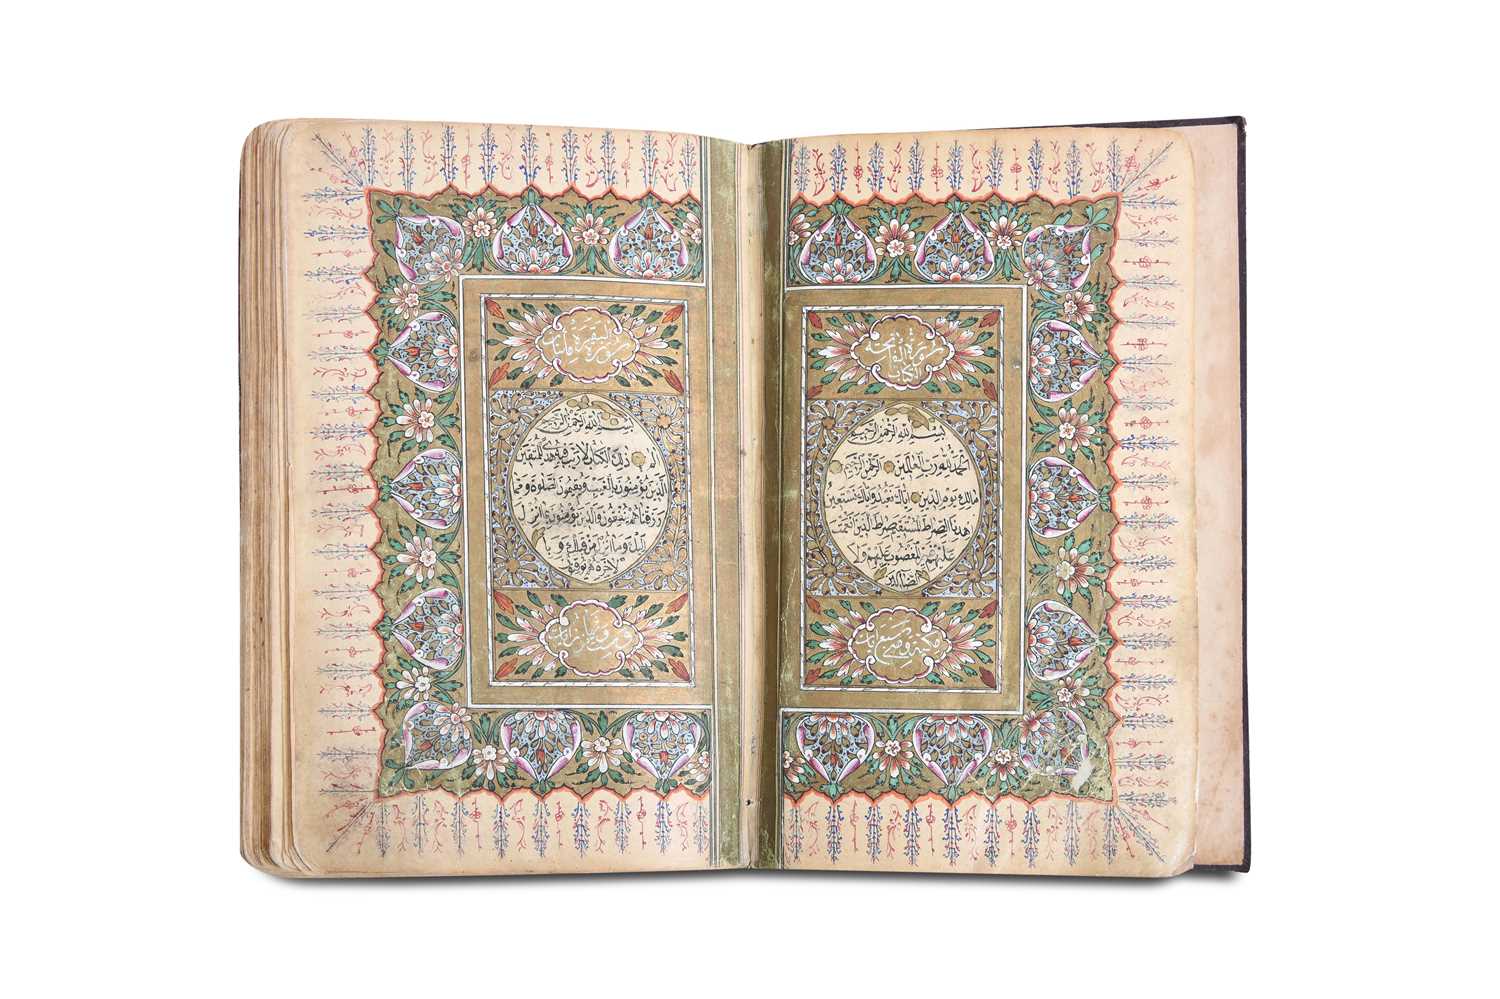 سورة الفاتحة
الكتاب
بسم الله الرحمن الرحيم
الحمد لله رب العلمين الرحمن الرحيم
مالك يوم الدين اياك نعبد واياك نستعين
اهدنا الصراط المستقيم صراط الذين انعمت
عليهم غير المغضوب عليهم ولا
الضالين
مكية وهي سبع ايات
سورة البقرة مائتان
بسم الله الرحمن الرحيم
الم ذلك الكتاب لا ريب فيه هدى للمتقين
الذين يؤمنون بالغيب ويقيمون الصلوة ومما
رزقناهم ينفقون والذين يؤمنون بما انزل
اليك وما انزل من قبلك وبا
لاخرة هم يوقنون
وست وثمانون ايات